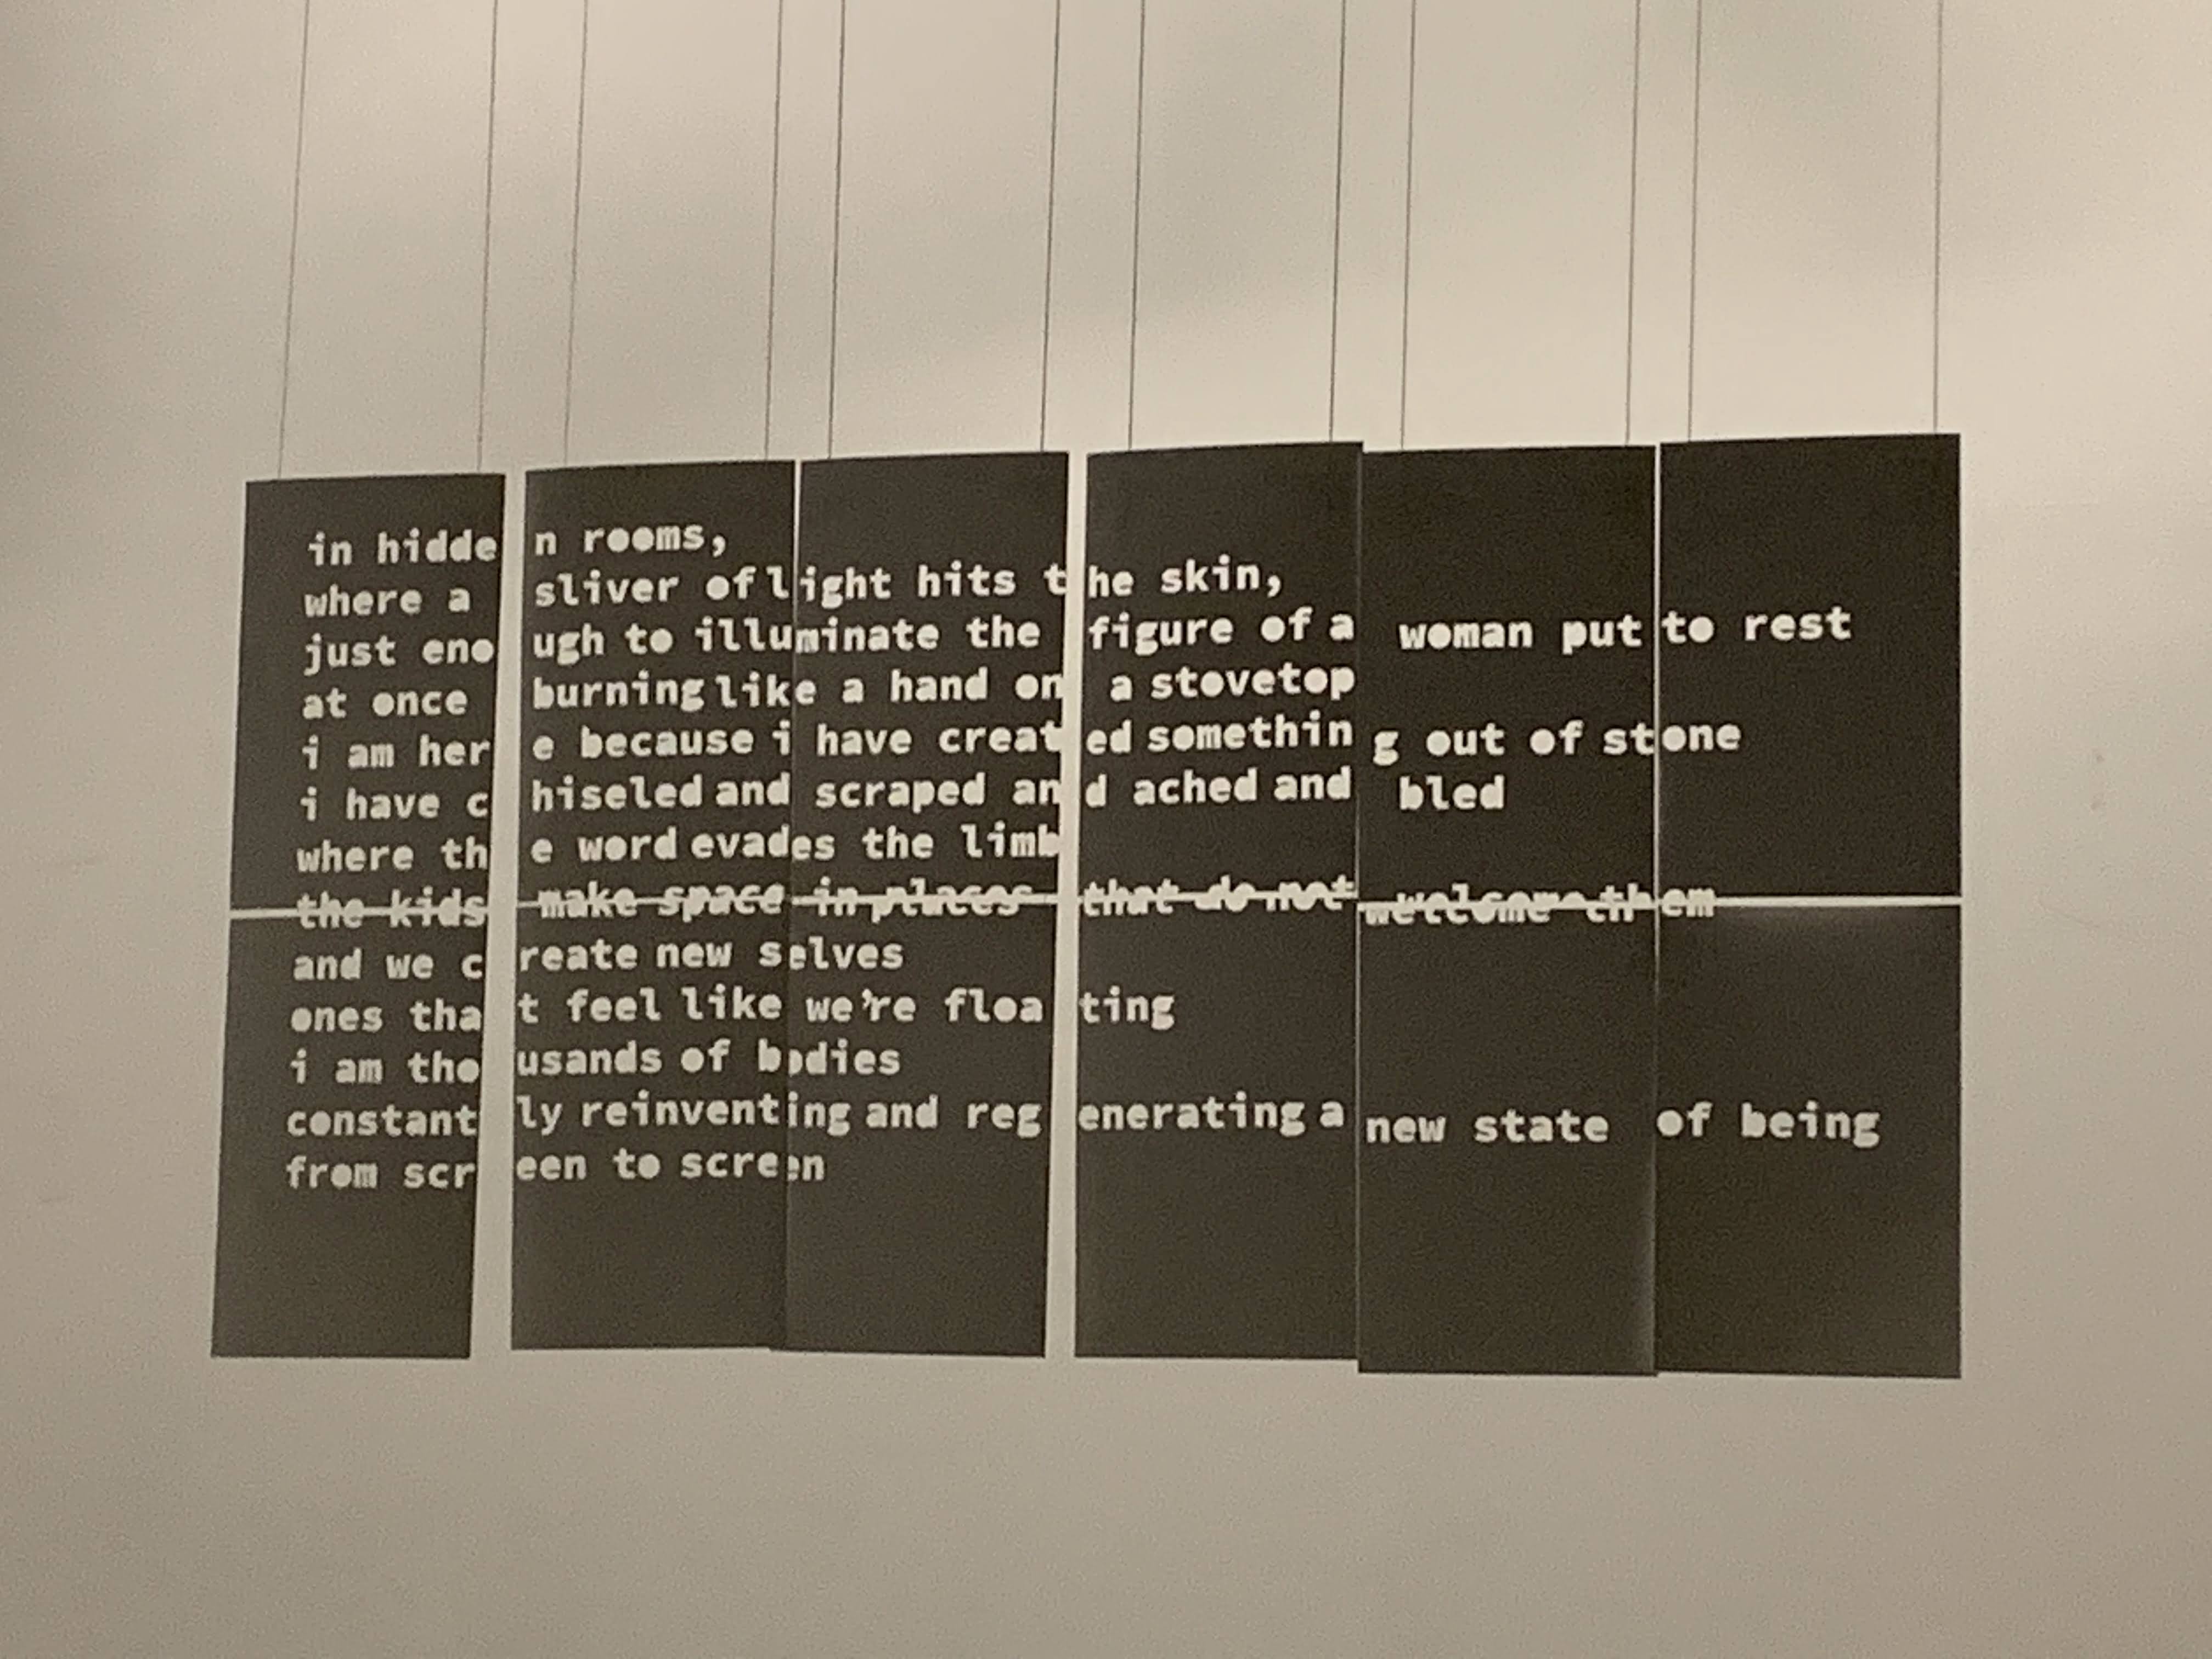 in hidden rooms,
where a sliver of light hits the skin,
just enough to illuminate the figure of a woman put to rest
at once burning like a hand on a stovetop
i am here because i have created something out of stone
i have chiseled and scraped and ached and bled
where the word evades the limb
the kids make space in places that do not welcome them
and we create new selves
ones that feel like we're floating
i am thousands of bodies
constantly reinventing and regenerating a new state of being
from screen to screen